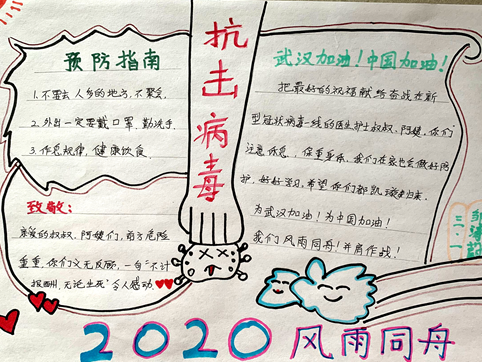 抗击病毒
预防指南
1.不要去人多的地方,不聚会.
2.外出一定要戴口罩.勤洗手.
3.作息规律,健康饮食.
致敬:
亲爱的叔叔、阿姨们,前方危险
重重,你们义无反顾,一句“不计
报酬,无论生死”令人感动.
武汉加油!中国加油!
把最好的祝福献给奋战在新
型冠状病毒一线的医生护士叔叔、阿姨,你们
注意休息,保重身体,我们在家也会做好防
护,好好学习,希望你们都凯旋归来.
为武汉加油!为中国加油!
我们风雨同舟!并肩作战!
二.1
2020风雨同舟